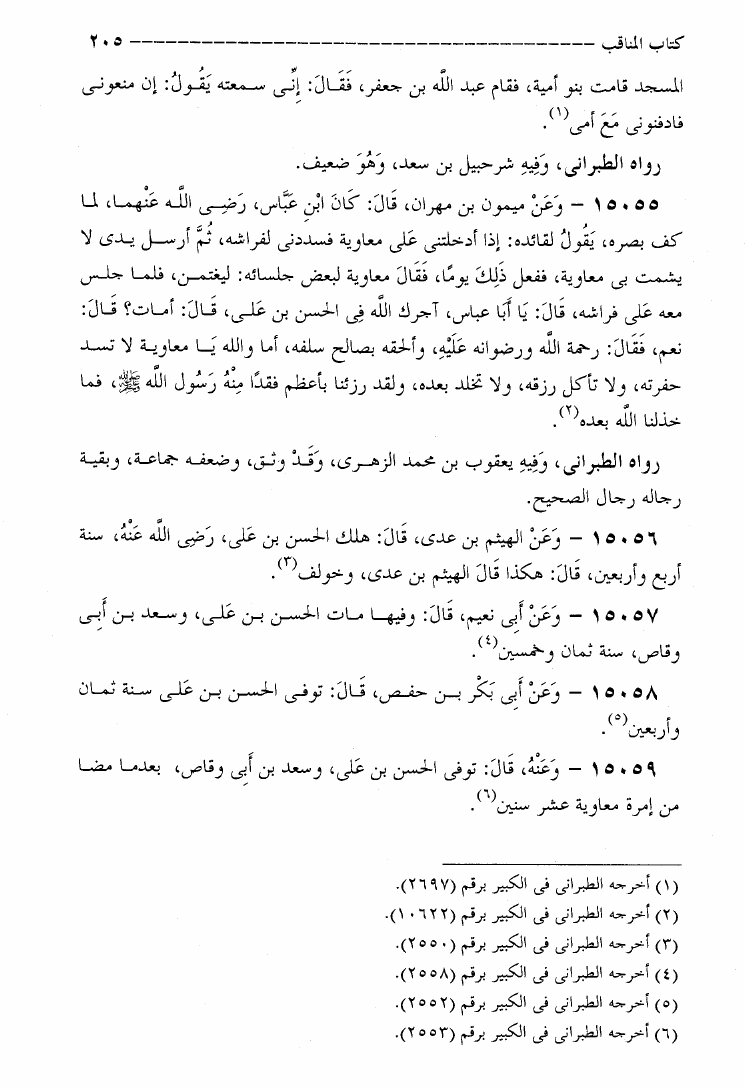 كتاب المناقب ---------------------------------------- ٢٠٥
المسجد قامت بنو أمية، فقام عبد الله بن جعفر، فَقَالَ: إِنِّى سمعته يَقُولُ: إن منعونى
فادفنونى مَعَ أمى(١).
رواه الطبرانى، وَفِيهِ شرحبيل بن سعد، وَهُوَ ضعيف.
١٥٠٥٥ – وَعَنْ ميمون بن مهران، قَالَ: كَانَ ابْنِ عَبَّاس، رَضِى اللَّه عَنْهما، لما
كف بصره، يَقُولُ لقائده: إذا أدخلتنى عَلَى معاوية فسددنى لفراشه، ثُمَّ أرسل يدى لا
يشمت بى معاوية، ففعل ذَلِكَ يومًا، فَقَالَ معاوية لبعض جلسائه: ليغتمن، فلما جلس
معه عَلَى فراشه، قَالَ: يَا أَبَا عباس، آجرك اللَّه فِى الحسن بن عَلى، قَالَ: أمات؟ قَالَ:
نعم، فَقَالَ: رحمة اللَّه ورضوانه عَلَيْهِ، وألحقه بصالح سلفه، أما والله يَا معاوية لا تسد
حفرته، ولا تأكل رزقه، ولا تخلد بعده، ولقد رزئنا بأعظم فقدًا مِنْهُ رَسُول اللَّه ﷺ، فما
خذلنا اللَّه بعده(٢).
رواه الطبرانى، وَفِيهِ يعقوب بن محمد الزهرى، وَقَدْ وثق، وضعفه جماعة، وبقية
رجاله رجال الصحيح.
١٥٠٥٦ – وَعَنْ الهيثم بن عدى، قَالَ: هلك الحسن بن على، رَضِى اللَّه عَنْهُ، سنة
أربع وأربعين، قَالَ: هكذا قَالَ الهيثم بن عدى، وخولف(٣).
١٥٠٥٧ – وَعَنْ أَبِى نعيم، قَالَ: وفيها مات الحسن بن عَلى، وسعد بن أَبِى
وقاص، سنة ثمان وخمسين(٤).
١٥٠٥٨ – وَعَنْ أَبِى بَكْر بن حفص، قَالَ: توفى الحسن بن عَلى سنة ثمان
وأربعين(٥).
١٥٠٥٩ – وَعَنْهُ، قَالَ: توفى الحسن بن عَلى، وسعد بن أَبِى وقاص، بعدما مضا
من إمرة معاوية عشر سنين(٦).
(١) أخرجه الطبرانى فى الكبير برقم (٢٦٩٧).
(٢) أخرجه الطبرانى فى الكبير برقم (١٠٦٢٢).
(٣) أخرجه الطبرانى فى الكبير برقم (٢٥٥٠).
(٤) أخرجه الطبرانى فى الكبير برقم (٢٥٥٨).
(٥) أخرجه الطبرانى فى الكبير برقم (٢٥٥٢).
(٦) أخرجه الطبرانى فى الكبير برقم (٢٥٥٣).